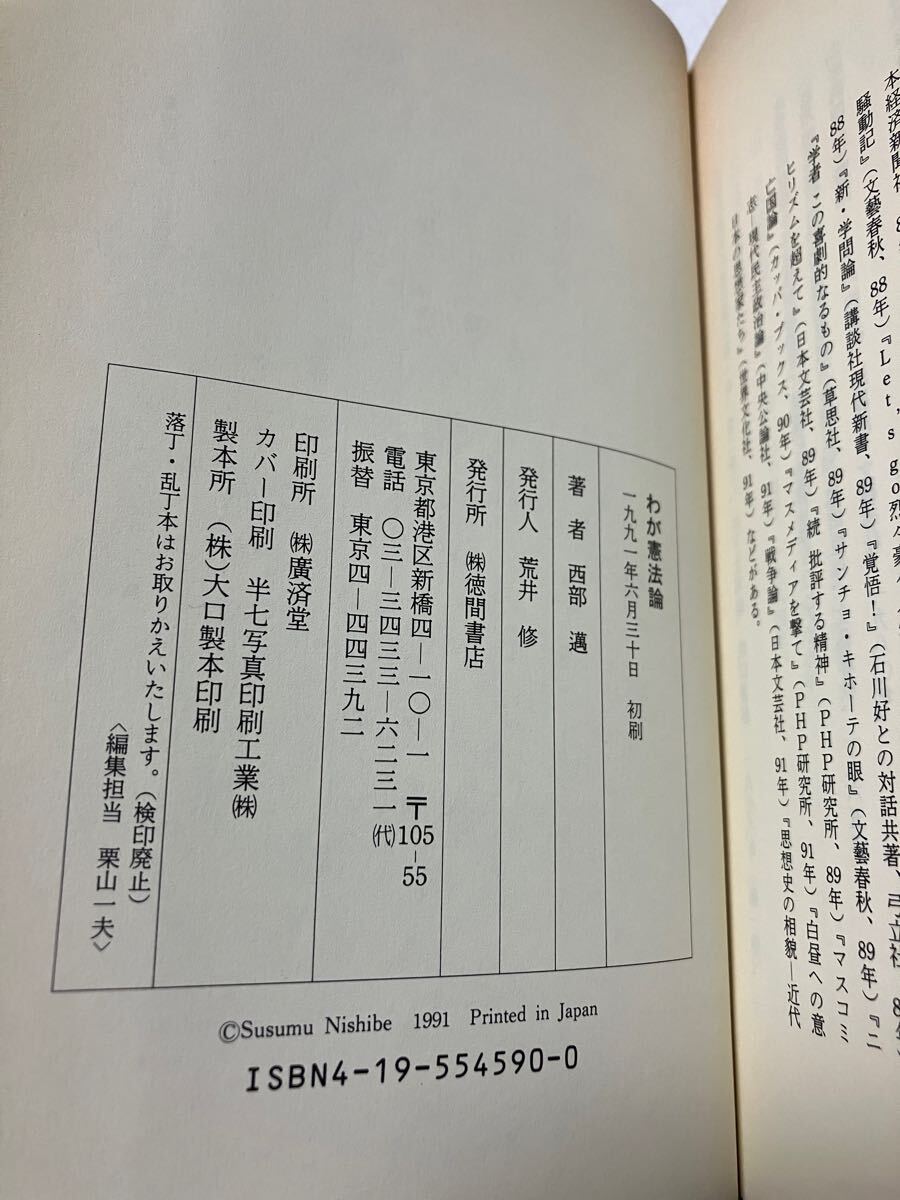 本経済新聞社、
騒動記』(文藝春秋、88年)『Let's go烈々豪
88年)『新・学問論』(講談社現代新書、89年)『覚悟!』(石川好との対話共著、弓立社、
『学者 この喜劇的なるもの』(草思社、89年)『サンチョ・キホーテの眼』(文藝春秋、89年)『ニ
ヒリズムを超えて』(日本文芸社、89年)『続 批評する精神』(PHP研究所、89年)『マスコミ
亡国論』(カッパ・ブックス、90年)『マスメディアを撃て』(PHP研究所、91年)『白昼への意
志―現代民主政治論』(中央公論社、91年)『戦争論』(日本文芸社、91年)『思想史の相貌―近代
日本の思想家たち』(世界文化社、91年)などがある。
わが憲法論
一九九一年六月三十日 初刷
著 者 西部 邁
発行人 荒井 修
発行所 ㈱徳間書店
東京都港区新橋四―一〇―一 〒105-55
電話 〇三―三四三三―六二三一㈹
振替 東京四―四四三九二
印刷所 ㈱廣済堂
カバー印刷 半七写真印刷工業㈱
製本所 (株)大口製本印刷
落丁・乱丁本はお取りかえいたします。(検印廃止)
〈編集担当 栗山一夫〉
©Susumu Nishibe 1991 Printed in Japan
ISBN4-19-554590-0